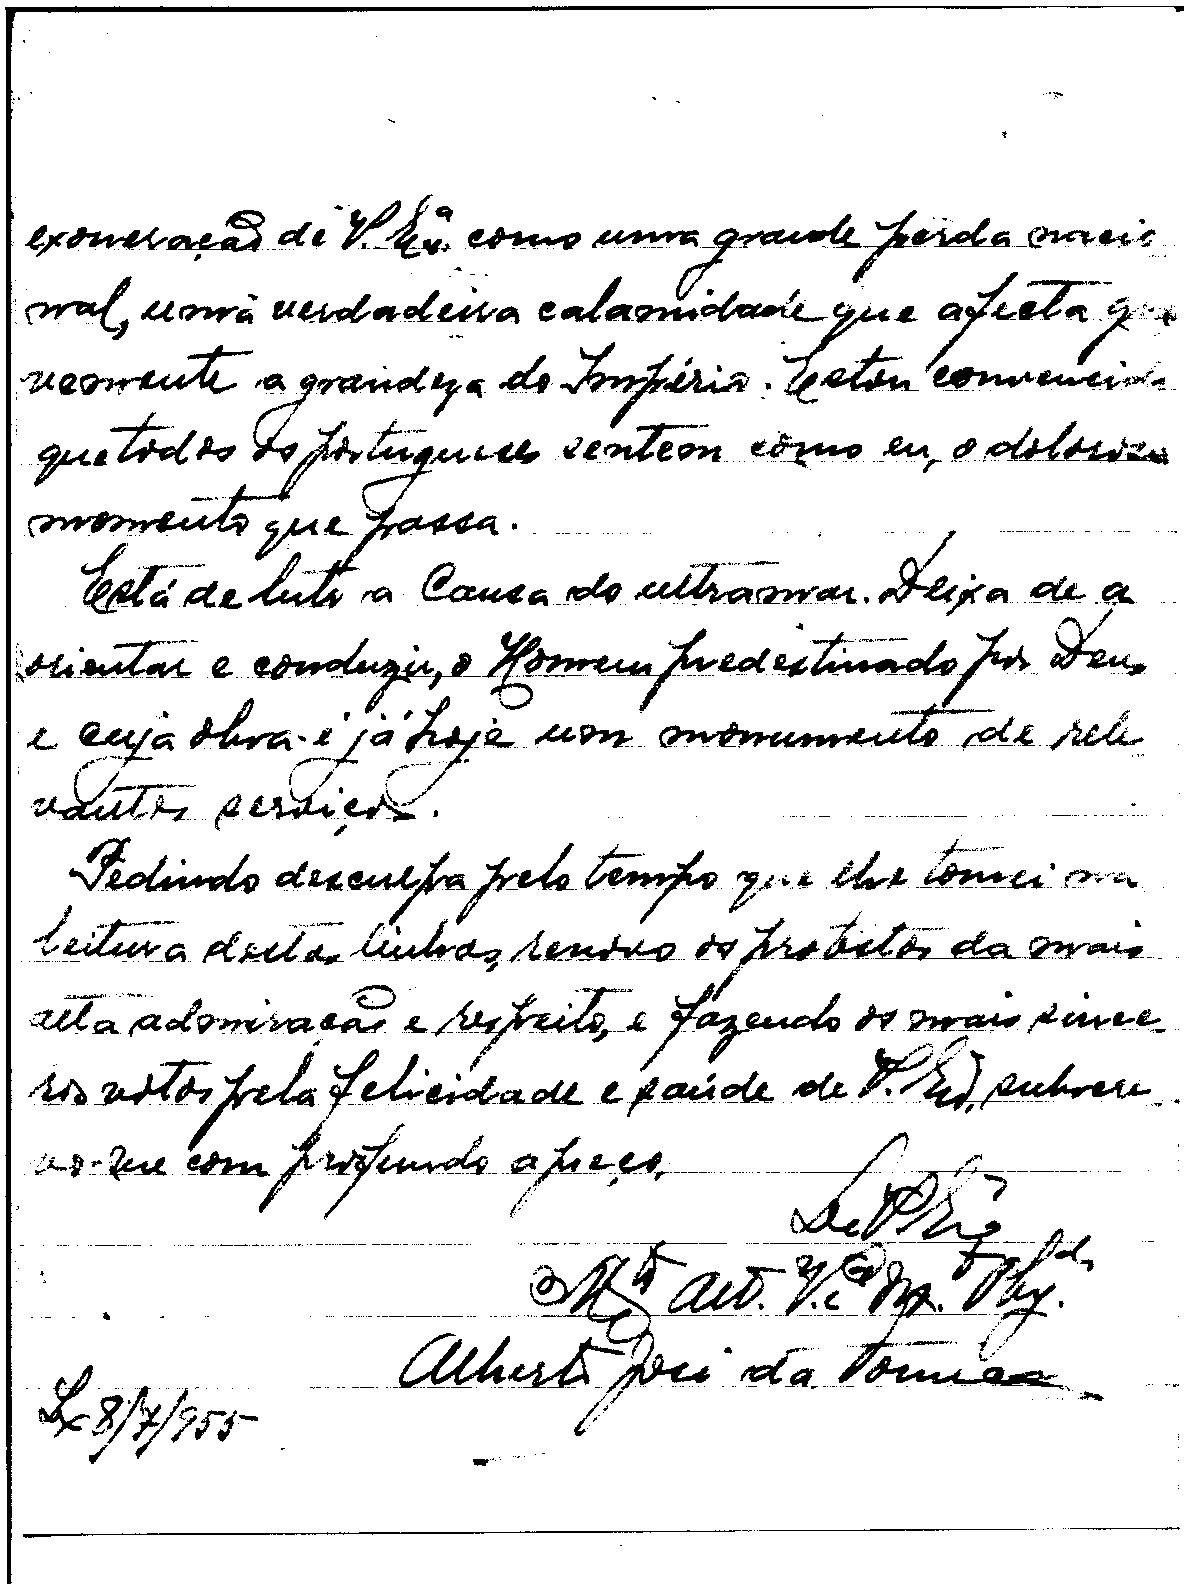 exoneração de V. Exª. como uma grande perda nacio
nal, uma verdadeira calamidade que afecta gra
vemente a grandeza do Império. Estou convencido
que todos os portugueses sentem como eu, o doloroso
momento que passa.
Está de luto a Causa do ultramar. Deixa de a
orientar e conduzir, o Homem predestinado por Deus
e cuja obra é já hoje um monumento de rele
vantes serviços.
Pedindo desculpa pelo tempo que lhe tomei na
leitura destas linhas, renovo os protestos da mais
alta admiração e respeito, e fazendo os mais since-
ros votos pela felicidade e saúde de V. Exª, subscre
vo-me com profundo apreço.
De V. Exª
Mtº Att. Vºr Obgdº.
Alberto José da
Lx 8/7/955